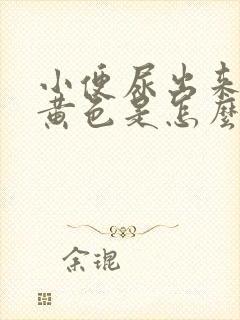 小便尿出来
黄色是怎麽
余琨